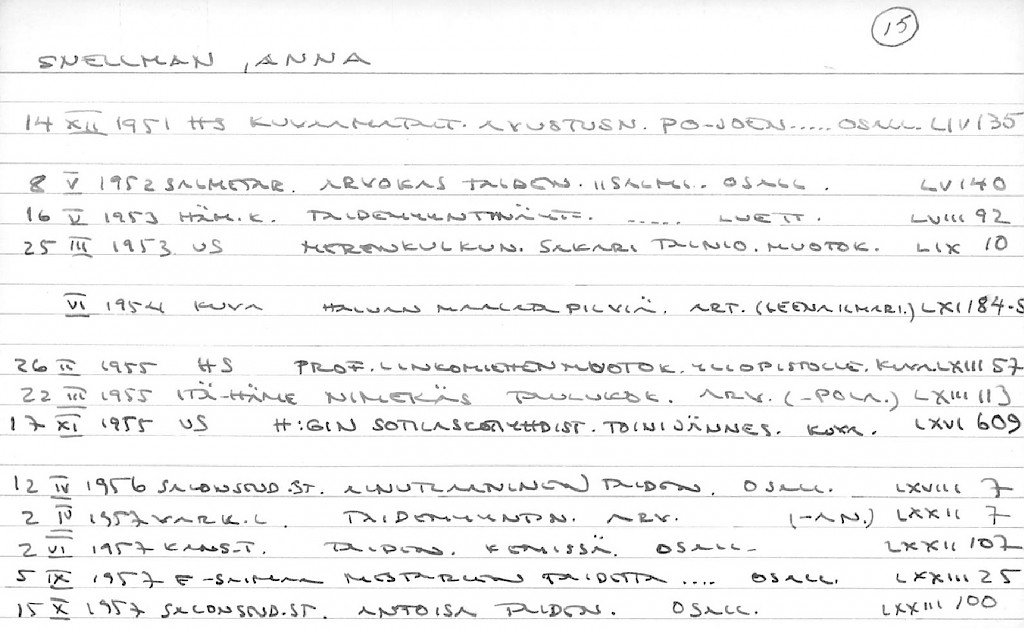 15
SNELLMAN, ANNA
14 XII 1951 HS KUVAAMATAIT. AVUSTUSN. PO-JOEN..... OSALL. LIV 135
8 V 1952 SALMETAR. ARVOKAS TAIDEN. IISALMI.. OSALL. LV 140
16 V 1953 HÄM.K. TAIDEMYYNTINÄYTT. ..... LUETT. LVIII 92
25 III 1953 US MERENKULKUN. SAKARI TAINIO. MUOTOK. LIX 10
VI 1954 KUVA HALUAN MAALATA PILVIÄ. ART. (LEENA ILMARI.) LXI 184-5
26 II 1955 HS PROF. LINKOMIEHEN MUOTOK. YLIOPISTOLLE. KUVA. LXIII 57
22 III 1955 ITÄ-HÄME NIMEKÄS TAULUKOK. ARV. (-POLA.) LXIII 113
17 XI 1955 US H:GIN SOTILASKOTIYHDIST. TOINI JÄNNES. KUVA. LXVI 609
12 IV 1956 SALONSEUD.ST. AINUTLAATUINEN TAIDEN. OSALL. LXVIII 7
2 IV 1957 VARK.L. TAIDEMYYNTIN. ARV. (-AN.) LXXII 7
2 VI 1957 KANS.T. TAIDEN. KEMISSÄ. OSALL- LXXII 107
5 IX 1957 E-SAIMAA MESTARIEN TAIDETTA .... OSALL. LXXIII 25
15 X 1957 SALONSEUD.ST. ANTOISA TAIDEN. OSALL. LXXIII 100